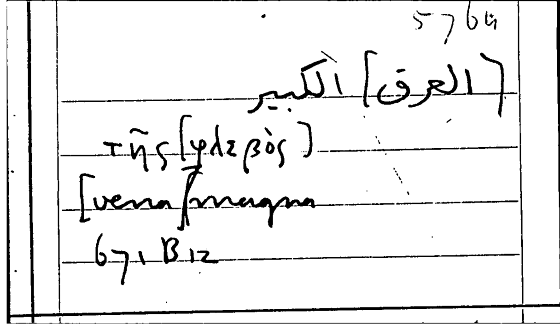 5764
[العرق] الكبير
τῆς [φλεβὸς]
[vena] magna
671 B12